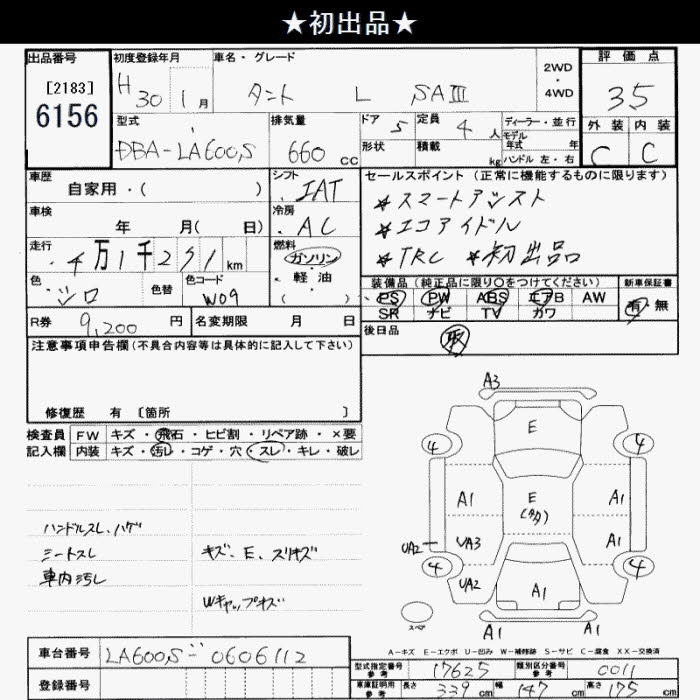 ★初出品★
出品番号 初度登録年月 車名・グレード 2WD・4WD 評価点
[2183] 6156
H30 1月 タント L SAⅢ 3.5
型式 排気量 ドア 定員 ディーラー・並行 外装 内装
DBA-LA600S 660CC 5 4人 モデル年式 年 C C
形状 積載 kg ハンドル 左・右
車歴 シフト セールスポイント(正常に機能するものに限ります)
自家用・( ) IAT ★スマートアシスト
車検 冷房 ★エコアイドル
年 月( 日) AC ★TRC ★初出品
走行 燃料
4万1千231km ガソリン・軽油 ( )
色 色替 色コード 装備品(純正品に限り〇をつけてください) 新車保証書
シロ W09 PS PW ABS エアB AW 有・無
SR ナビ TV カワ
R券 9,200円 名変期限 月 日 後日品 取
注意事項申告欄(不具合内容等は具体的に記入して下さい)
修復歴 有 〔箇所 〕
検査員 FW キズ・飛石・ヒビ割・リペア跡・×要
記入欄 内装 キズ・汚し・コゲ・穴・スレ・キレ・破レ
ハンドルスレ、ハゲ
シートスレ キズ、E、スリキズ
車内汚し
Wキャップキズ
A3
E
4 4
A1 E A1
UA2 UA3 A1
4 4
UA2 A1
A1 A1
スペア
A-キズ E-エクボ U-凹み W-補修跡 S-サビ C-腐食 XX-交換済
車台番号 LA600S-0606112
登録番号
型式指定番号 参考 17625 類別区分番号 参考 0011
車庫証明用 参考 長さ 339cm 幅 147cm 高さ 175cm